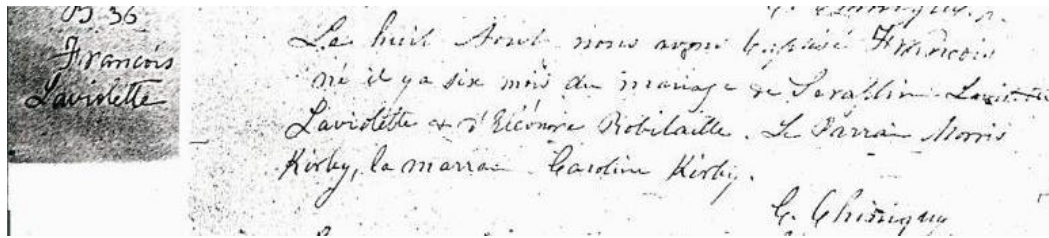 B 36
François
Laviolette
C. Chiniquy. p.
Le huit Août nous avons baptisé François
né il y a six mois du mariage de Séraphin
Laviolette & d'Eléonore Robitaille. Le Parrain Morris
Kirby, la marraine Caroline Kirby.
C. Chiniquy